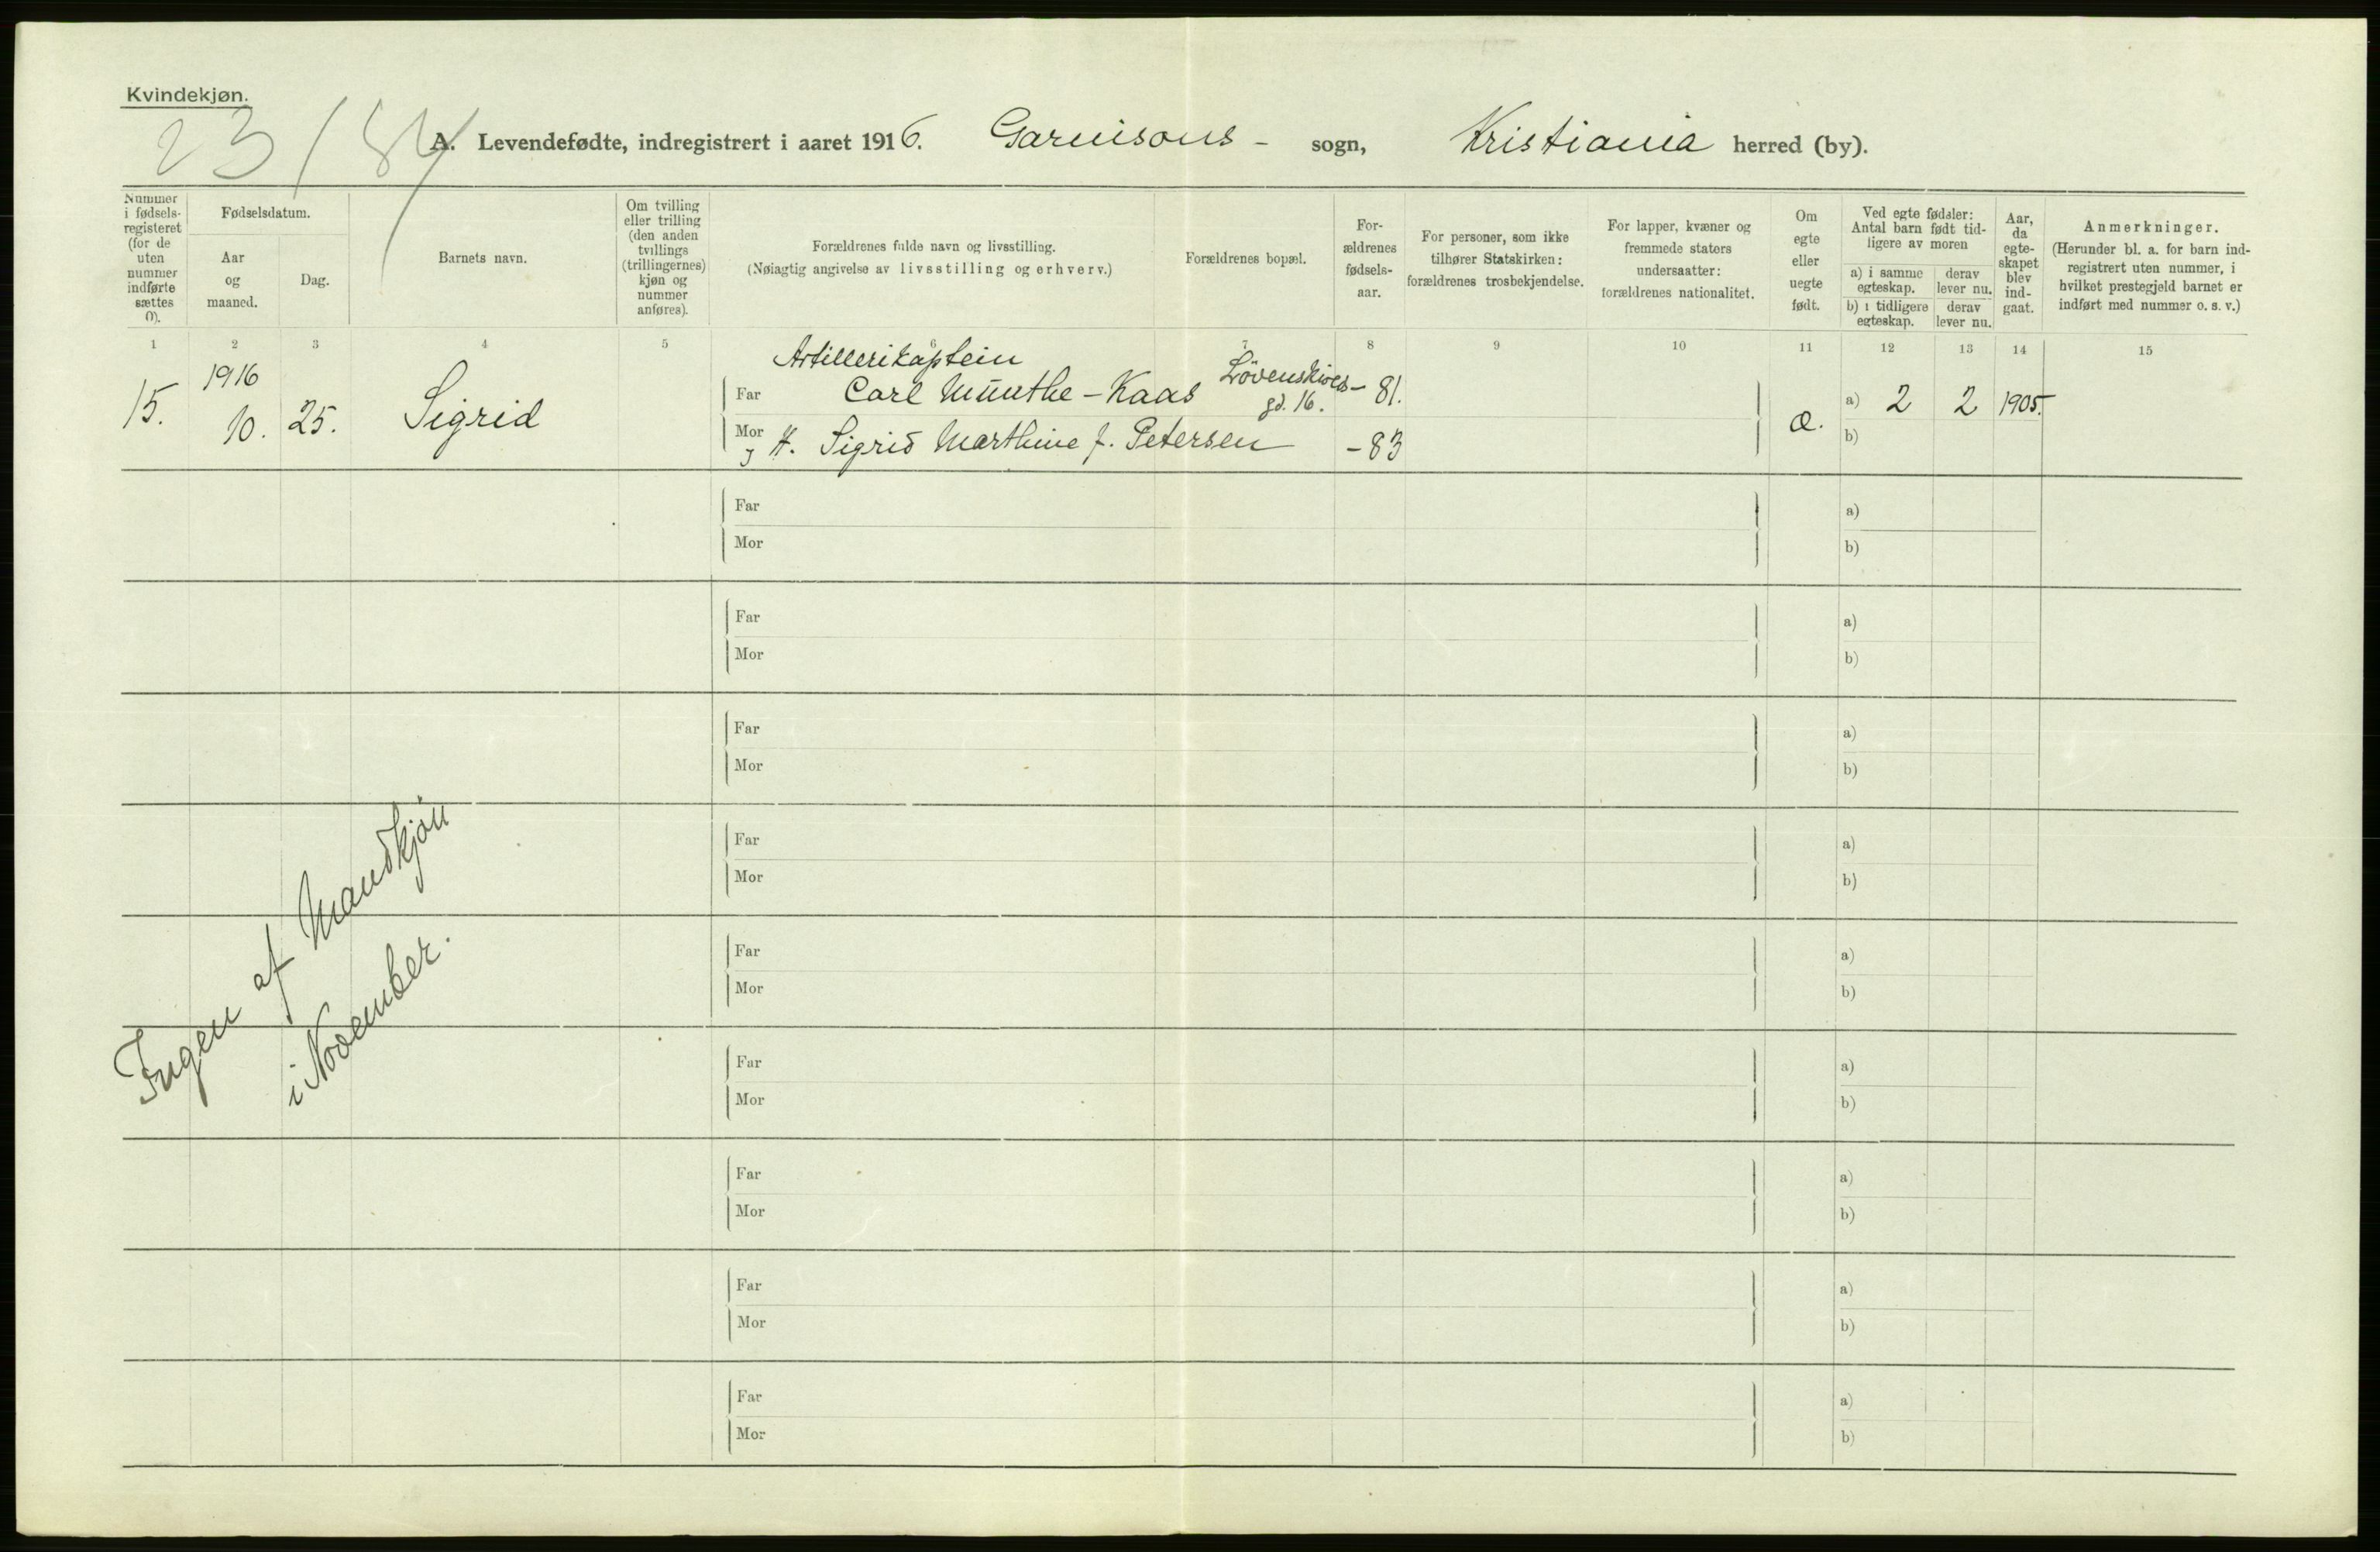 Kvindekjøn.
23/84
A. Levendefødte, indregistrert i aaret 1916. Garnisons- sogn, Kristiania herred (by).
Nummer i fødsels-registeret (for de uten nummer indførte sættes 0).
Fødselsdatum.
Aar og maaned.
Dag.
Barnets navn.
Om tvilling eller trilling (den anden tvillings (trillingernes) kjøn og nummer anføres).
Forældrenes fulde navn og livsstilling.
(Nøiagtig angivelse av livsstilling og erhverv.)
Forældrenes bopæl.
For-ældrenes fødsels-aar.
For personer, som ikke tilhører Statskirken: forældrenes trosbekjendelse.
For lapper, kvæner og fremmede staters undersaatter: forældrenes nationalitet.
Om egte eller uegte født.
Ved egte fødsler: Antal barn født tid-ligere av moren
a) i samme egteskap.
derav lever nu.
b) i tidligere egteskap.
derav lever nu.
Aar, da egte-skapet blev ind-gaat.
Anmerkninger.
(Herunder bl. a. for barn ind-registrert uten nummer, i hvilket prestegjeld barnet er indført med nummer o. s. v.)
1 2 3 4 5 6 7 8 9 10 11 12 13 14 15
Artillerikaptein
15. 1916 10. 25. Sigrid
Far Carl Munthe-Kaas Lövenskiolds gd. 16. -81.
Mor H. Sigrid Marthine f. Petersen -83
æ. a) 2 2 1905.
b)
Far a)
Mor b)
Far a)
Mor b)
Far a)
Mor b)
Far a)
Mor b)
Far a)
Mor b)
Far a)
Mor b)
Far a)
Mor b)
Far a)
Mor b)
Far a)
Mor b)
Ingen af Mandkjön
i November.